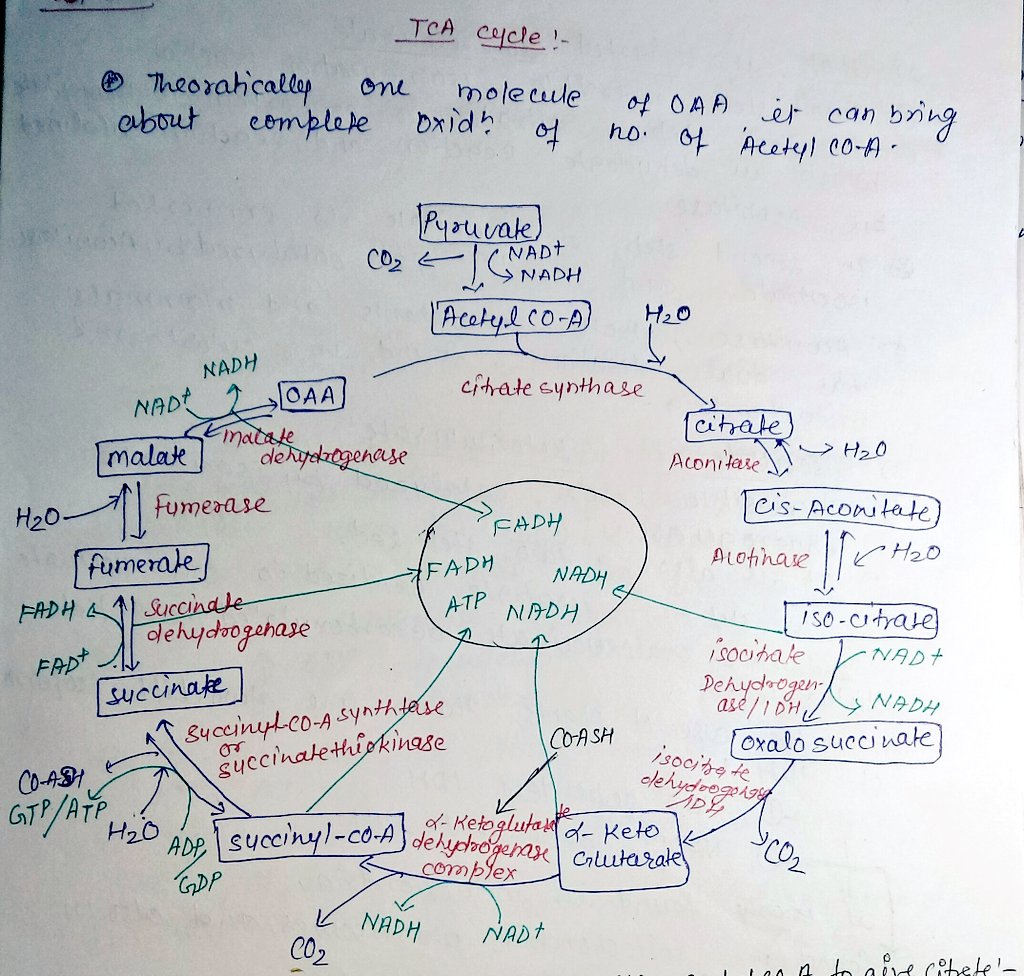 TCA cycle:-
⊛ Theoratically one molecule of OAA it can bring
about complete oxidⁿ of no. of Acetyl CO-A.
Pyruvate
CO₂
NAD+
NADH
Acetyl CO-A
H₂O
citrate synthase
NADH
NAD+
OAA
malate
dehydrogenase
malate
citrate
Aconitase
H₂O
cis-Aconitate
Acotinase
H₂O
iso-citrate
isocitrate
Dehydrogen-
ase/IDH
NAD+
NADH
oxalo succinate
isocitrate
dehydrogenase
/IDH
CO₂
α-Keto
Glutarate
COASH
α-Ketoglutate
dehydrogenase
complex
NADH
NAD+
CO₂
succinyl-co-A
Succinyl-CO-A synthtase
or
succinatethiokinase
CO-ASH
GTP/ATP
H₂O
ADP/
GDP
succinate
Succinate
dehydrogenase
FADH
FAD+
fumerate
Fumerase
H₂O
FADH
FADH
NADH
ATP
NADH
A to give citrate:-